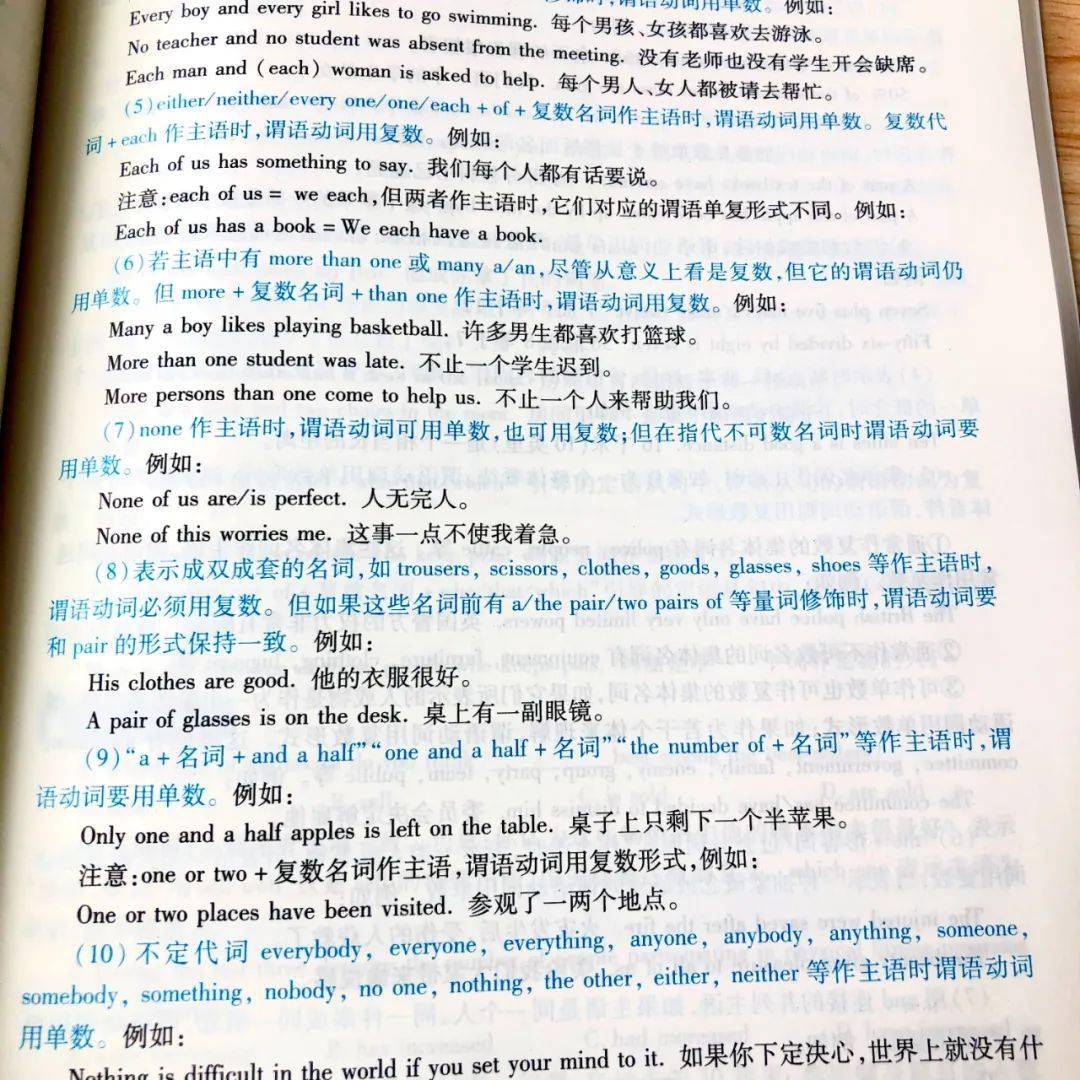 饰时,谓语动词用单数。例如:
Every boy and every girl likes to go swimming. 每个男孩、女孩都喜欢去游泳。
No teacher and no student was absent from the meeting. 没有老师也没有学生开会缺席。
Each man and (each) woman is asked to help. 每个男人、女人都被请去帮忙。
(5)either/neither/every one/one/each+of+复数名词作主语时,谓语动词用单数。复数代
词+each 作主语时,谓语动词用复数。例如:
Each of us has something to say. 我们每个人都有话要说。
注意:each of us = we each,但两者作主语时,它们对应的谓语单复形式不同。例如:
Each of us has a book = We each have a book.
(6)若主语中有 more than one 或 many a/an,尽管从意义上看是复数,但它的谓语动词仍
用单数。但 more+复数名词+than one 作主语时,谓语动词用复数。例如:
Many a boy likes playing basketball. 许多男生都喜欢打篮球。
More than one student was late. 不止一个学生迟到。
More persons than one come to help us. 不止一个人来帮助我们。
(7)none 作主语时,谓语动词可用单数,也可用复数;但在指代不可数名词时谓语动词要
用单数。例如:
None of us are/is perfect. 人无完人。
None of this worries me. 这事一点不使我着急。
(8)表示成双成套的名词,如 trousers, scissors, clothes, goods, glasses, shoes 等作主语时,
谓语动词必须用复数。但如果这些名词前有 a/the pair/two pairs of 等量词修饰时,谓语动词要
和 pair 的形式保持一致。例如:
His clothes are good. 他的衣服很好。
A pair of glasses is on the desk. 桌上有一副眼镜。
(9)“a+名词+and a half”“one and a half+名词”“the number of+名词”等作主语时,谓
语动词要用单数。例如:
Only one and a half apples is left on the table. 桌子上只剩下一个半苹果。
注意:one or two+复数名词作主语,谓语动词用复数形式,例如:
One or two places have been visited. 参观了一两个地点。
(10)不定代词 everybody, everyone, everything, anyone, anybody, anything, someone,
somebody, something, nobody, no one, nothing, the other, either, neither 等作主语时谓语动词
用单数。例如:
Nothing is difficult in the world if you set your mind to it. 如果你下定决心,世界上就没有什